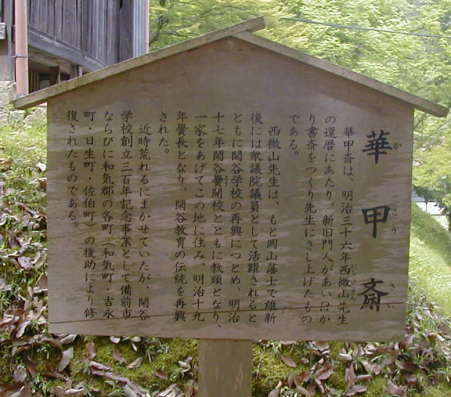 華甲斎
か こう さい
華甲斎は、明治三十六年西微山先生
の還暦にあたり、新旧門人があいはか
り書斎をつくり先生にさし上げたもの
である。
西微山先生は、もと岡山藩士で維新
後には衆議院議員として活躍されると
ともに閑谷学校の再興につとめ、明治
十七年閑谷黌開校とともに教頭になり、
一家をあげてこの地に住み、明治十九
年黌長となり、閑谷教育の伝統を再興
された。
近時荒れるにまかせていたが、閑谷
学校創立三百年記念事業として備前市
ならびに和気郡の各町(和気町・吉永
町・日生町・佐伯町)の援助により修
復されたものである。